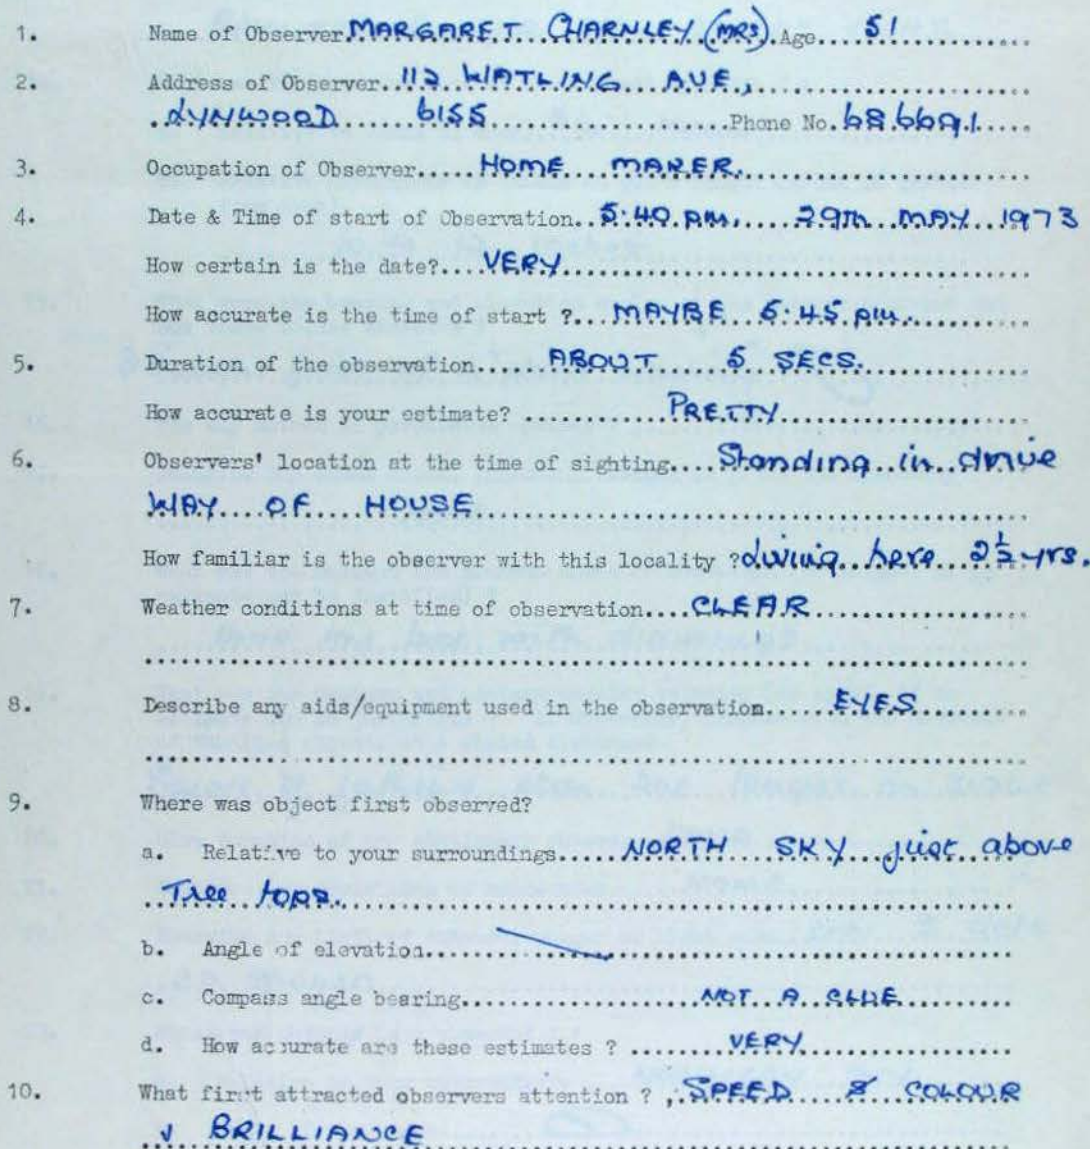 1. Name of Observer MARGARET CHARNLEY (MRS) Age 51
2. Address of Observer 112 WATLING AVE,
LYNWOOD 6155 Phone No. 68.6691
3. Occupation of Observer HOME MAKER.
4. Date & Time of start of Observation 5:40 PM. 29TH MAY 1973
How certain is the date? VERY
How accurate is the time of start ? MAYBE 5:45 PM.
5. Duration of the observation ABOUT 5 SECS.
How accurate is your estimate? PRETTY
6. Observers' location at the time of sighting Standing in drive
WAY OF HOUSE
How familiar is the observer with this locality ? Living here 2½ yrs.
7. Weather conditions at time of observation CLEAR
8. Describe any aids/equipment used in the observation EYES
9. Where was object first observed?
a. Relative to your surroundings NORTH SKY just above
Tree tops.
b. Angle of elevation
c. Compass angle bearing NOT A CLUE
d. How accurate are these estimates ? VERY
10. What first attracted observers attention ? SPEED & COLOUR
& BRILLIANCE